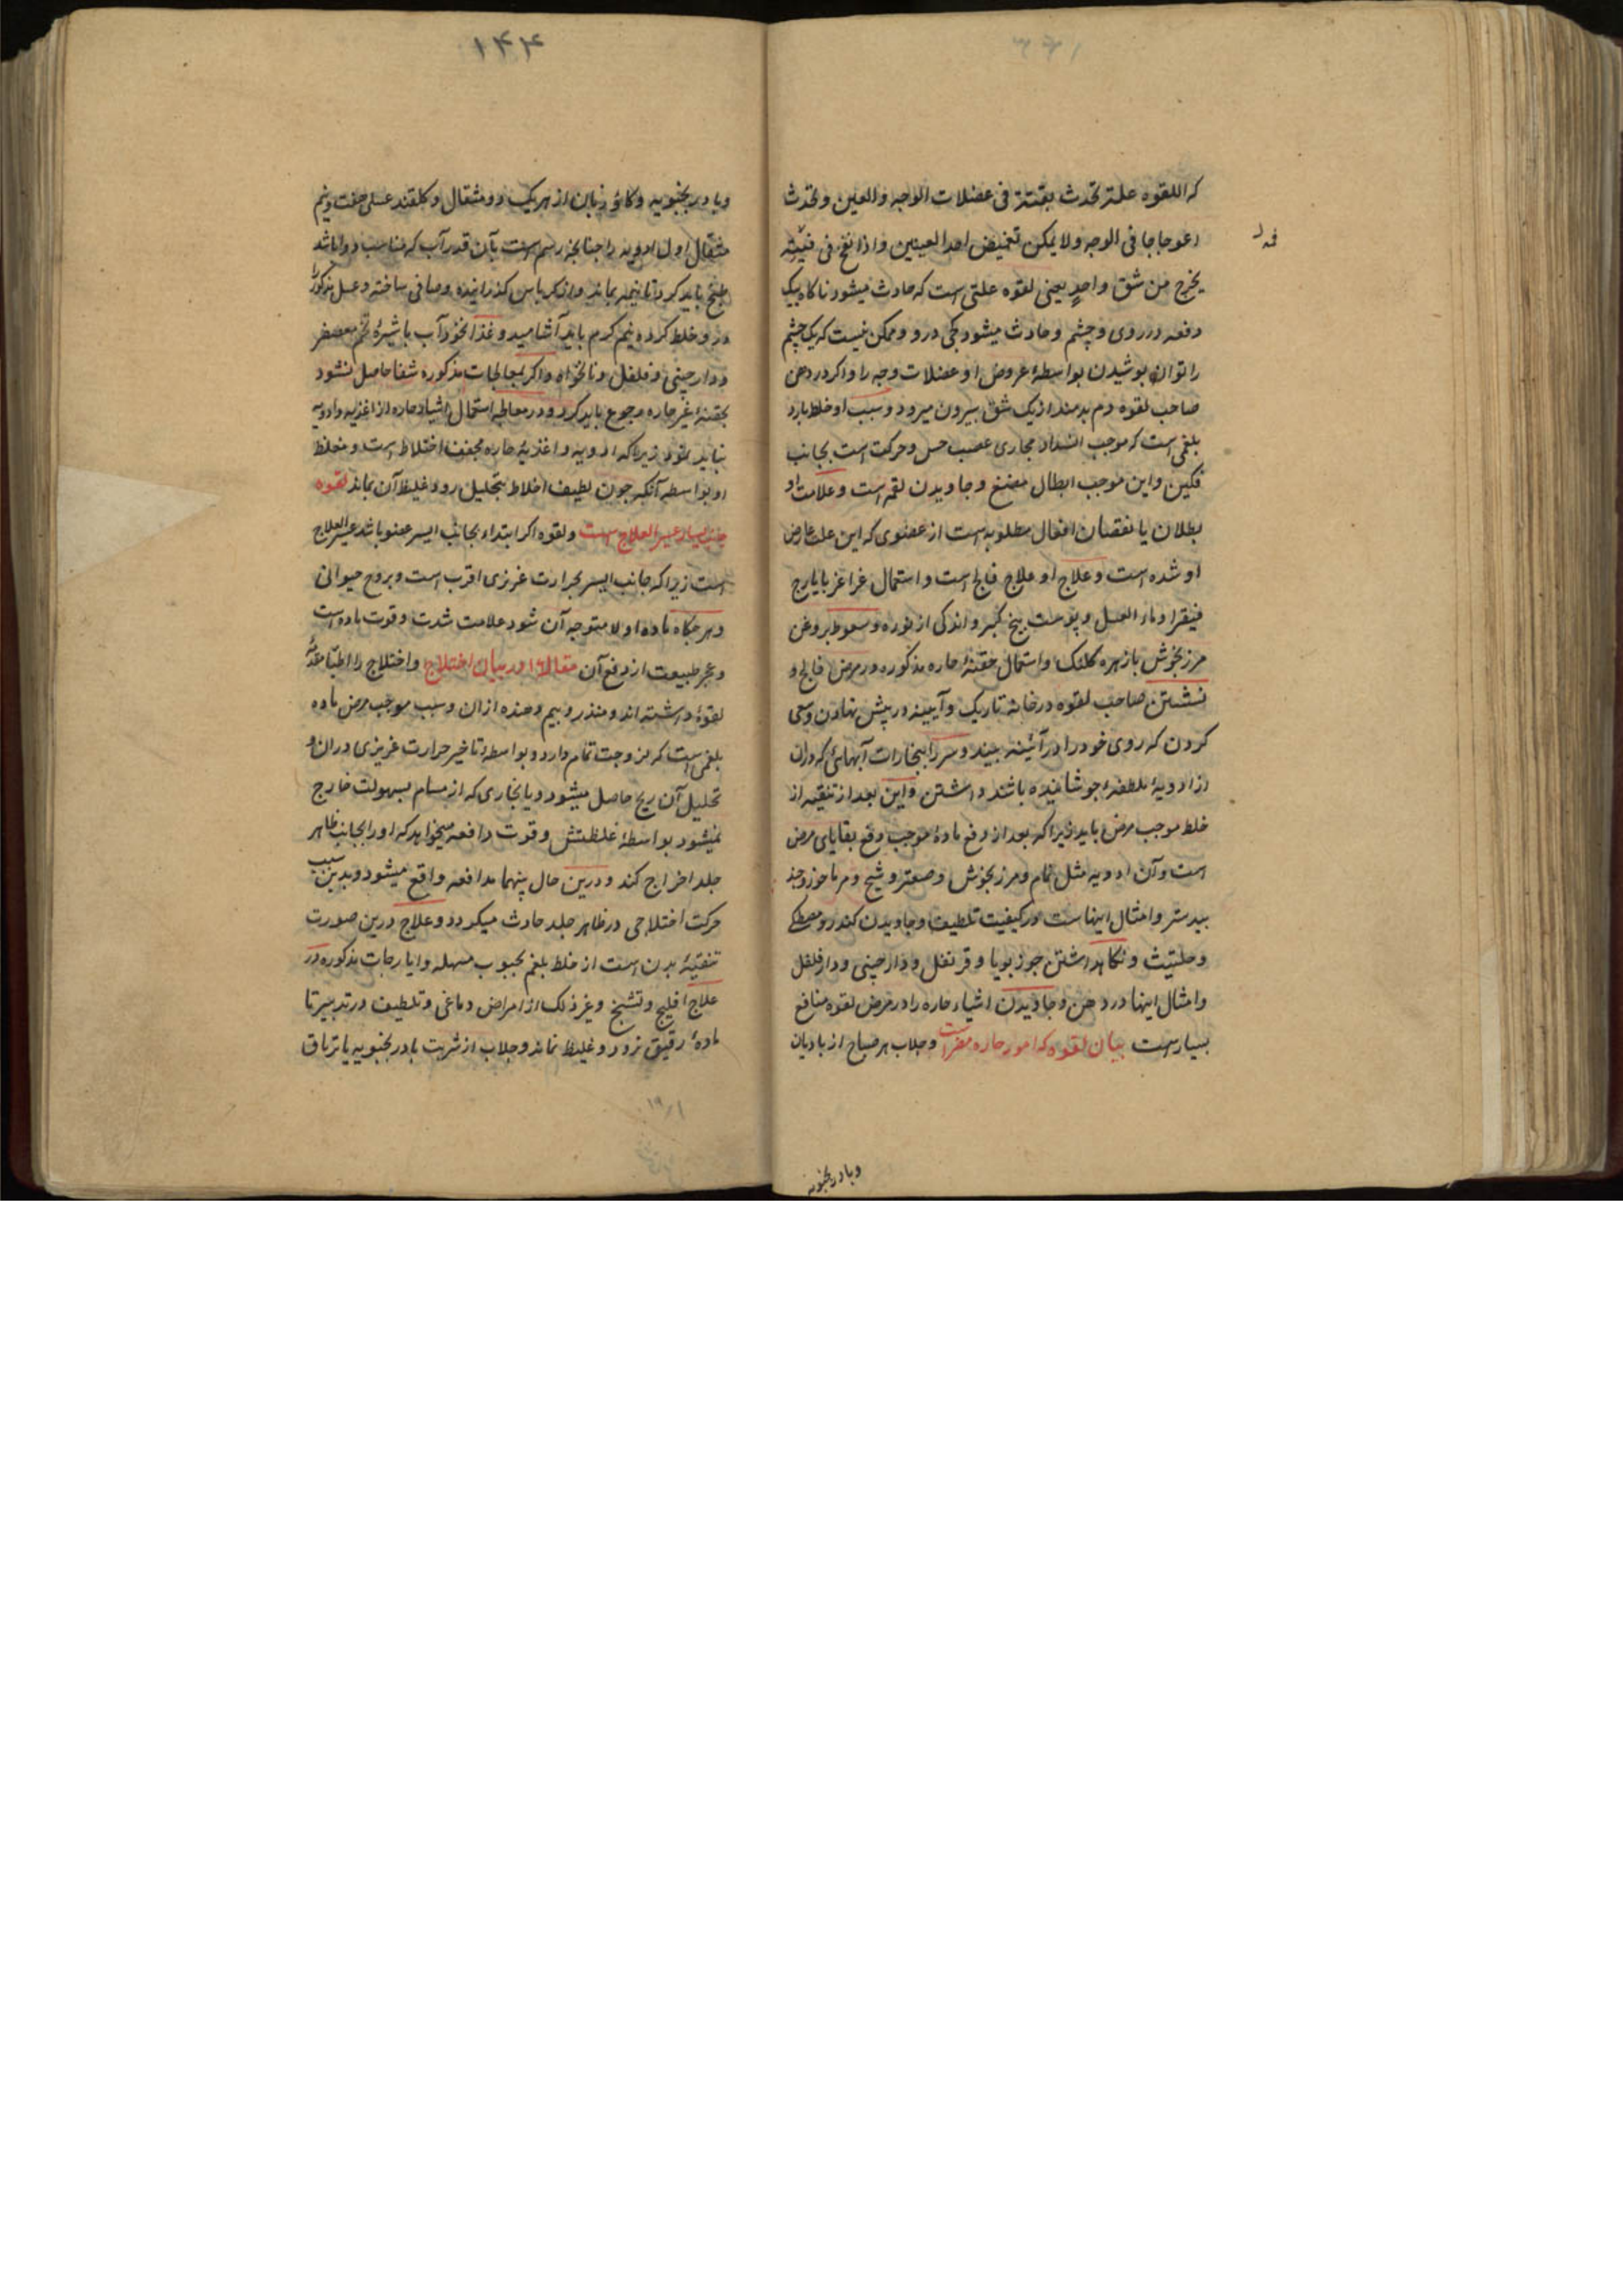 که اللقوه علة تحدث بغتة فی عضلات الوجه والعین و تحدث
اعوجاجا فی الوجه ولا یمکن تغمیض احد العینین واذا نفخ فی فیه
یخرج من شق واحد یعنی لقوه علتی است که حادث میشود ناکاه بیک
دفعه در روی و چشم و حادث میشود کجی در و و ممکن نیست که یک چشم
را توان پوشیدن بواسطهٔ عروض او عضلات وجه را و اکر در دهن
صاحب لقوه دم بدمند از یک شق بیرون میرود و سبب او خلط بارد
بلغمی است که موجب انسداد مجاری عصب حس و حرکت است بجانب
فکین و این موجب ابطال مضغ و جاویدن لقمه است و علامت او
بطلان یا نقصان افعال مطلوبه است از عضوی که این علت عارض
او شده است و علاج او علاج فالج است و استعمال غراغر بایارج
فیقرا و ماء العسل و پوست بیخ کبر و اندکی از بوره و سعوط بروغن
مرزنجوش بازهره کلنک و استعمال حقنهٔ حاره مذکوره در مرض فالج و
نشستن صاحب لقوه در خانه تاریک و آیینه در پیش نهادن و سعی
کردن که روی خود را در آئینه بیند و سر را ببخارات آبهائی که دران
از ادویهٔ ملطفه جوشانیده باشند داشتن و این بعد از تنقیه از
خلط موجب مرض باید زیرا که بعد از دفع مادهٔ موجب دفع بقایای مرض
است و آن ادویه مثل نمام و مرزنجوش و صعتر و شیح و مرماحوز و جند
بیدستر و امثال اینهاست در کیفیت تلطیف و جاویدن کندر و مصطکی
و حلتیث و نکاهداشتن جوز بویا و قرنفل و دارچینی و دارفلفل
و امثال اینها در دهن و جاویدن اشیاء حاره را در مرض لقوه منافع
بسیار است بیان لقوه که امور حاره مضر است و جلاب هر صباح از بادیان
وبادرنجبویه
۱۴۴
وبادرنجبویه و کاو زبان از هر یک دو مثقال و کلقند عسلی هفت و نیم
مثقال اول ادویه را چنانچه رسم است بآن قدر آب که مناسب دوا باشد
طبخ باید کرد تا نیمه بماند و از کرباس کذرانیده و صافی ساخته و عسل مذکور را
در و خلط کرده نیم کرم باید آشامید و غذا نخود آب با شیرهٔ تخم معصفر
و دارچینی و فلفل و نانخواه و اکر بمعالجات مذکوره شفا حاصل نشود
بحقنهٔ غیر حاره رجوع باید کرد و در معالجه استعمال اشیاء حاره از اغذیه و ادویه
نباید نمود زیرا که ادویه و اغذیهٔ حاره مجفف اختلاط است و مغلظ
او بواسطه آنکه چون لطیف اخلاط بتحلیل رود غلیظ آن بماند لقوه
جانب یسار عسیر العلاج است و لقوه اکر ابتداء بجانب ایسر عضو باشد عسیر العلاج
است زیرا که جانب ایسر بحرارت غریزی اقرب است و بروح حیوانی
و هر جکاه ماده اولا متوجه آن شود علامت شدت و قوت ماده است
و عجز طبیعت از دفع آن مقاله ۱۶ در بیان اختلاج و اختلاج را اطبا مقدمهٔ
لقوه داشته اند و منذر و بیم دهنده ازان و سبب موجب مرض ماده
بلغمی است که لزوجت تمام دارد و بواسطهٔ تاخیر حرارت غریزی دران و
تحلیل آن ریح حاصل میشود و یا بخاری که از مسام بسهولت خارج
نمیشود بواسطهٔ غلظتش و قوت دافعه میخواهد که او را بجانب ظاهر
جلد اخراج کند و درین حال بینهما مدافعه واقع میشود و بدین سبب
حرکت اختلاجی در ظاهر جلد حادث میکردد و علاج درین صورت
تنقیهٔ بدن است از خلط بلغم بحبوب مسهله و ایارجات مذکوره در
علاج افلیج و تشنج و غیر ذلک از امراض دماغی و تلطیف در تدبیر تا
مادهٔ رقیق نرود و غلیظ نماند و جلاب از شربت بادرنجبویه یا تریاق